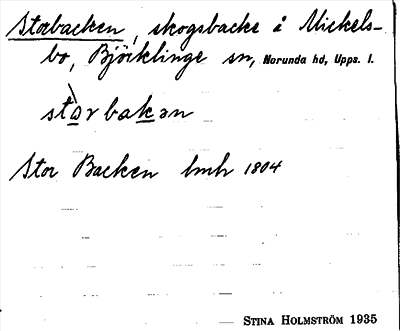 Storbacken, skogsbacke å Mickels-
bo, Björklinge sn, Norunda hd, Upps. l.
stòr bakan
Stor Backen lmh 1804
STINA HOLMSTRÖM 1935